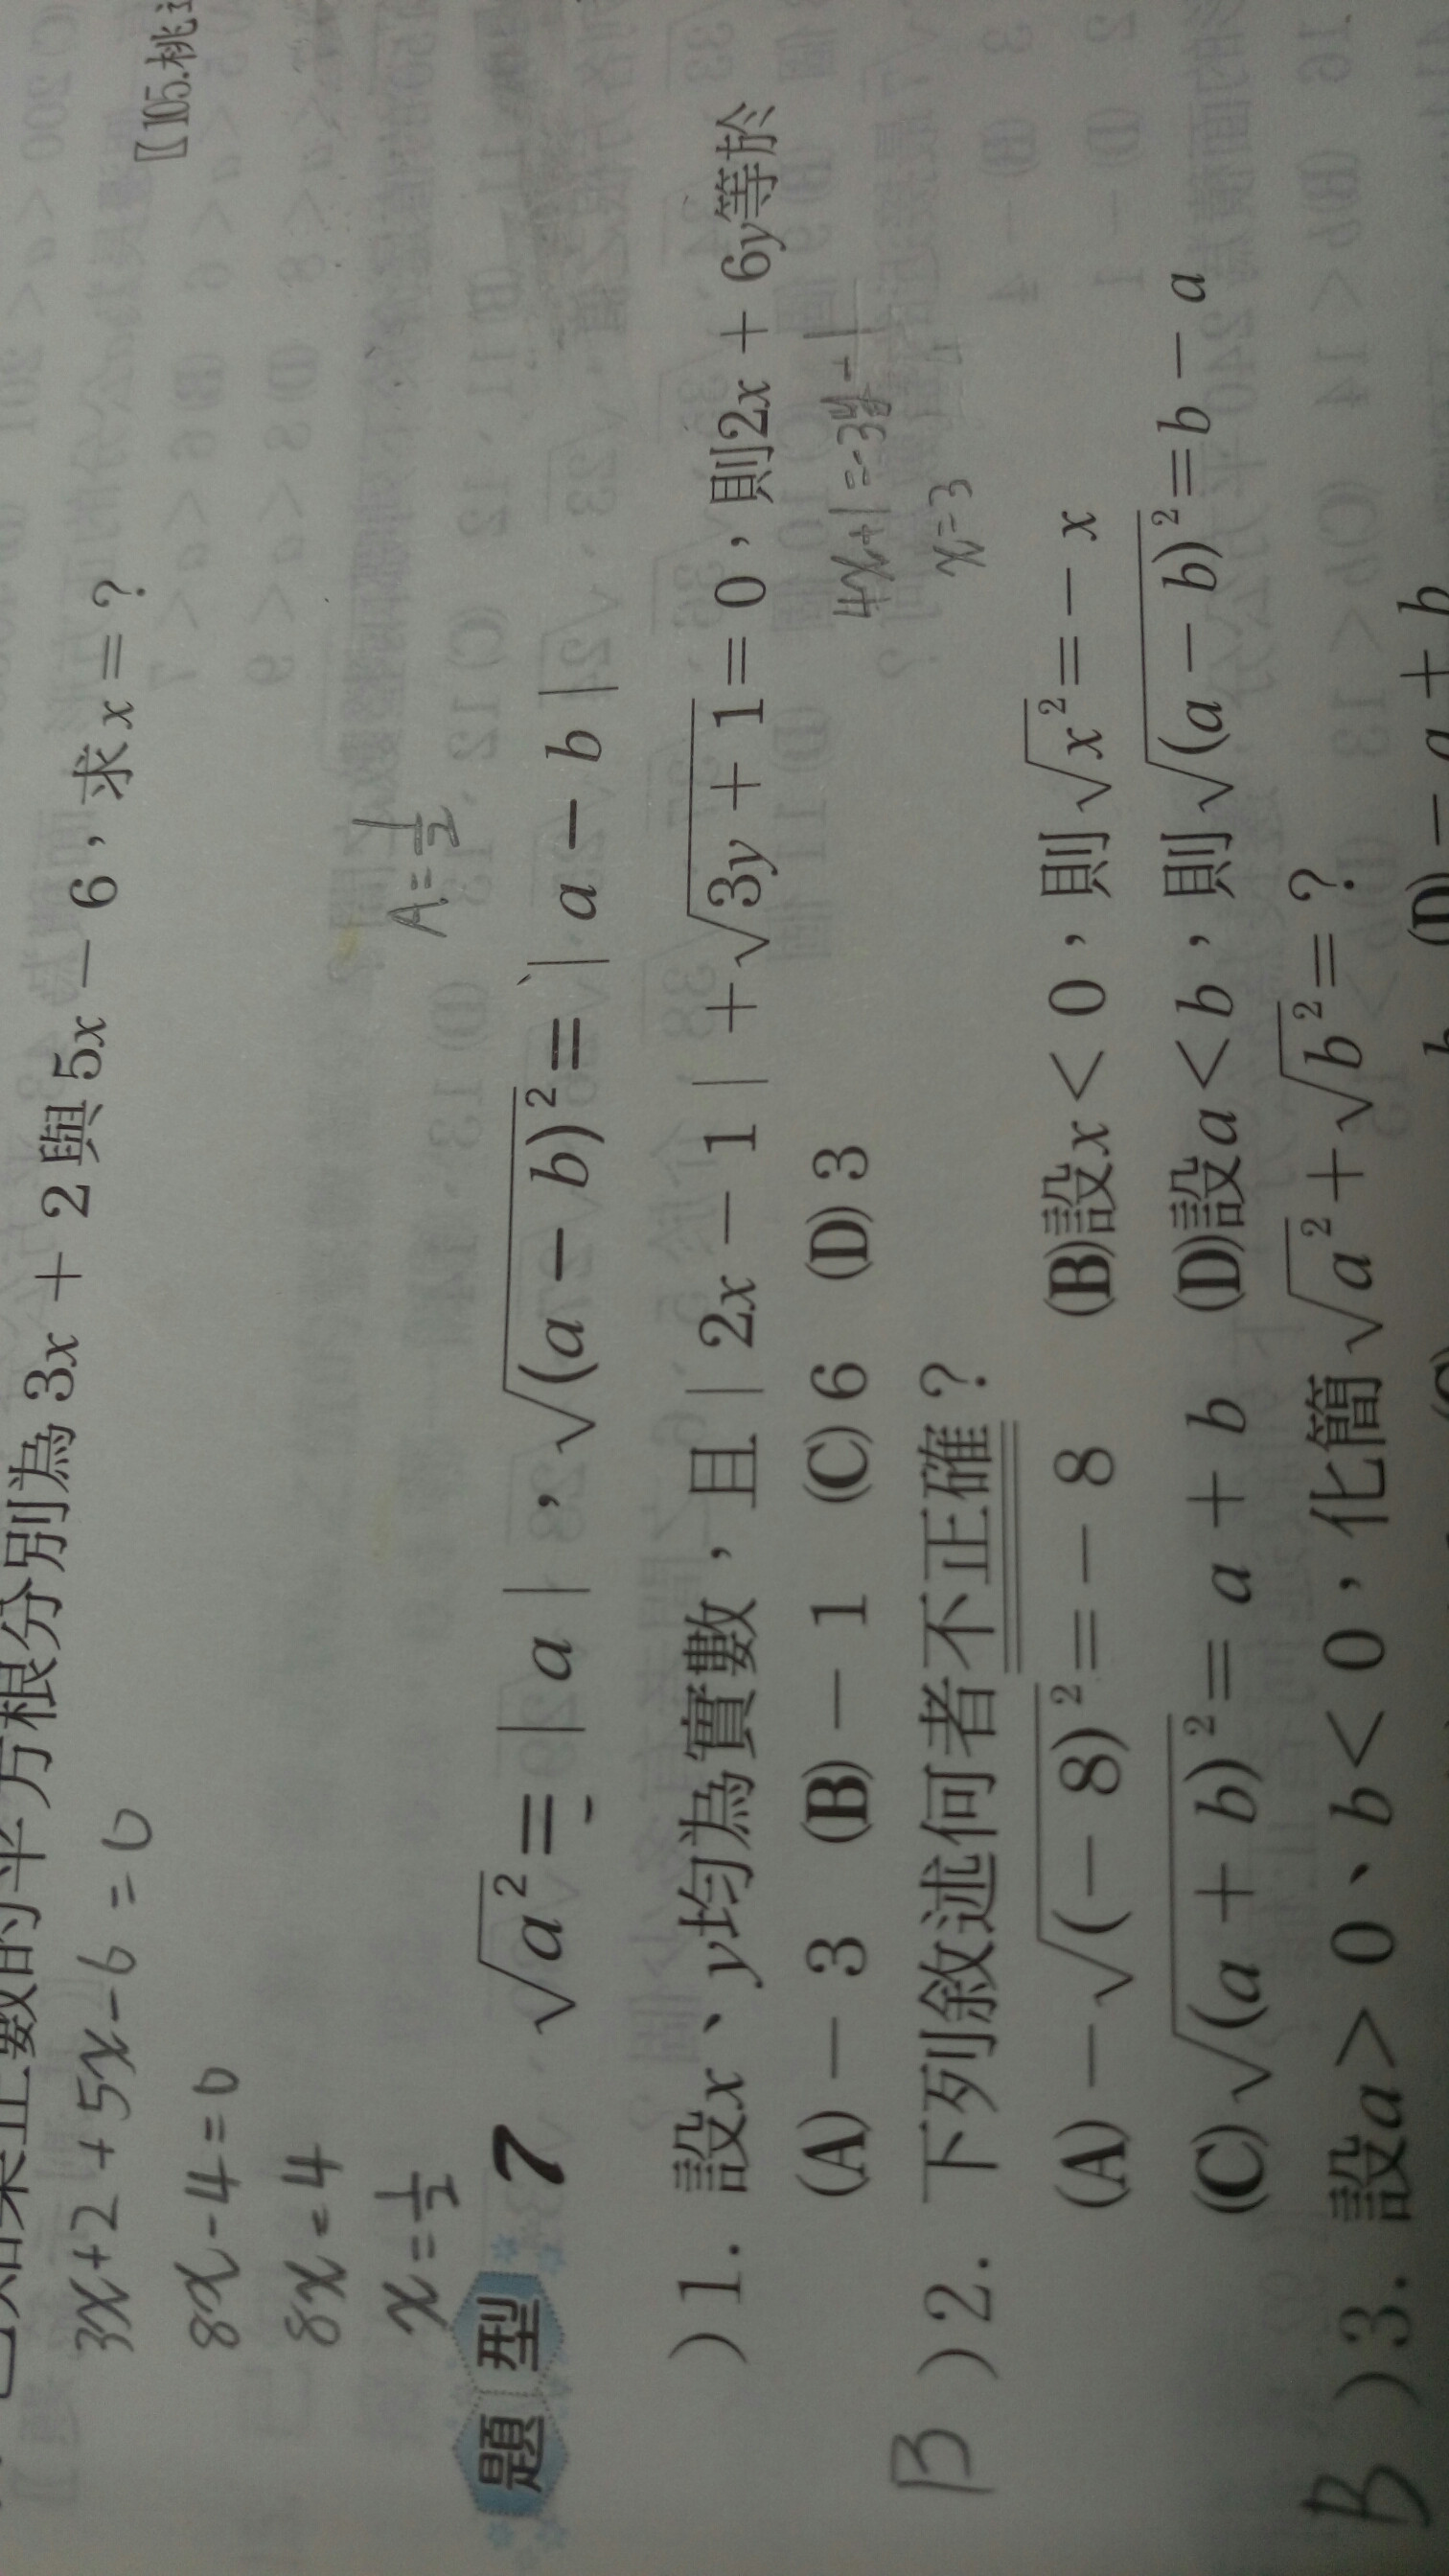 知某正數的平方根分別為3x + 2與5x − 6，求x = ?
〖105.桃
3x+2+5x-6=0
8x-4=0
8x=4
x=1/2
A:=1/2
題型 7 √a² = | a |，√(a − b)² = | a − b |
) 1. 設x、y均為實數，且 | 2x − 1 | + √3y + 1 = 0，則2x + 6y等於
(A) − 3 (B) − 1 (C) 6 (D) 3
x=3
B ) 2. 下列敘述何者不正確？
(A) − √(− 8)² = − 8 (B)設x < 0，則√x² = − x
(C)√(a + b)² = a + b (D)設a < b，則√(a − b)² = b − a
B ) 3. 設a > 0、b < 0，化簡√a² + √b² = ?
(D) − a + b